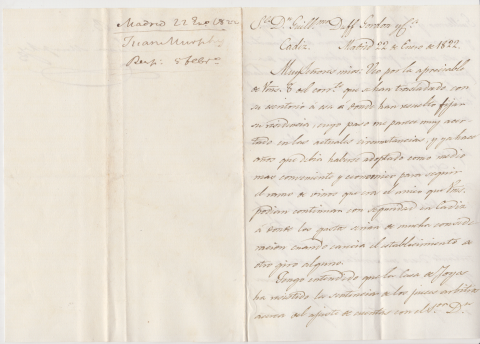 Madrid 22 Eno 1822
Juan Murphy
Resp. 5 febro
Sr. Dn. Guillmo. Duff Gordon y Ca.
Cadiz. Madrid 22 de Enero de 1822.
Muy Señores mios: Veo por la apreciable
de Vms. 8 del corrte. que se han trasladado con
su escritorio á esa á donde han resuelto fijar
su residencia, cuyo paso me parece muy acer-
tado en las actuales circunstancias, y ya hace
años que debia haberse adoptado como medio
mas conveniente y economico para seguir
el ramo de vinos que era el unico que Vms.
podian continuar con seguridad en Cadiz
á donde los gastos serian de mucha conside-
racion cuando carecia el establecimiento de
otro giro alguno.
Tengo entendido que la Casa de Joyas
ha resistido la sentencia de los jueces arbitros
acerca del ajuste de cuentas con el Sr. Dn.